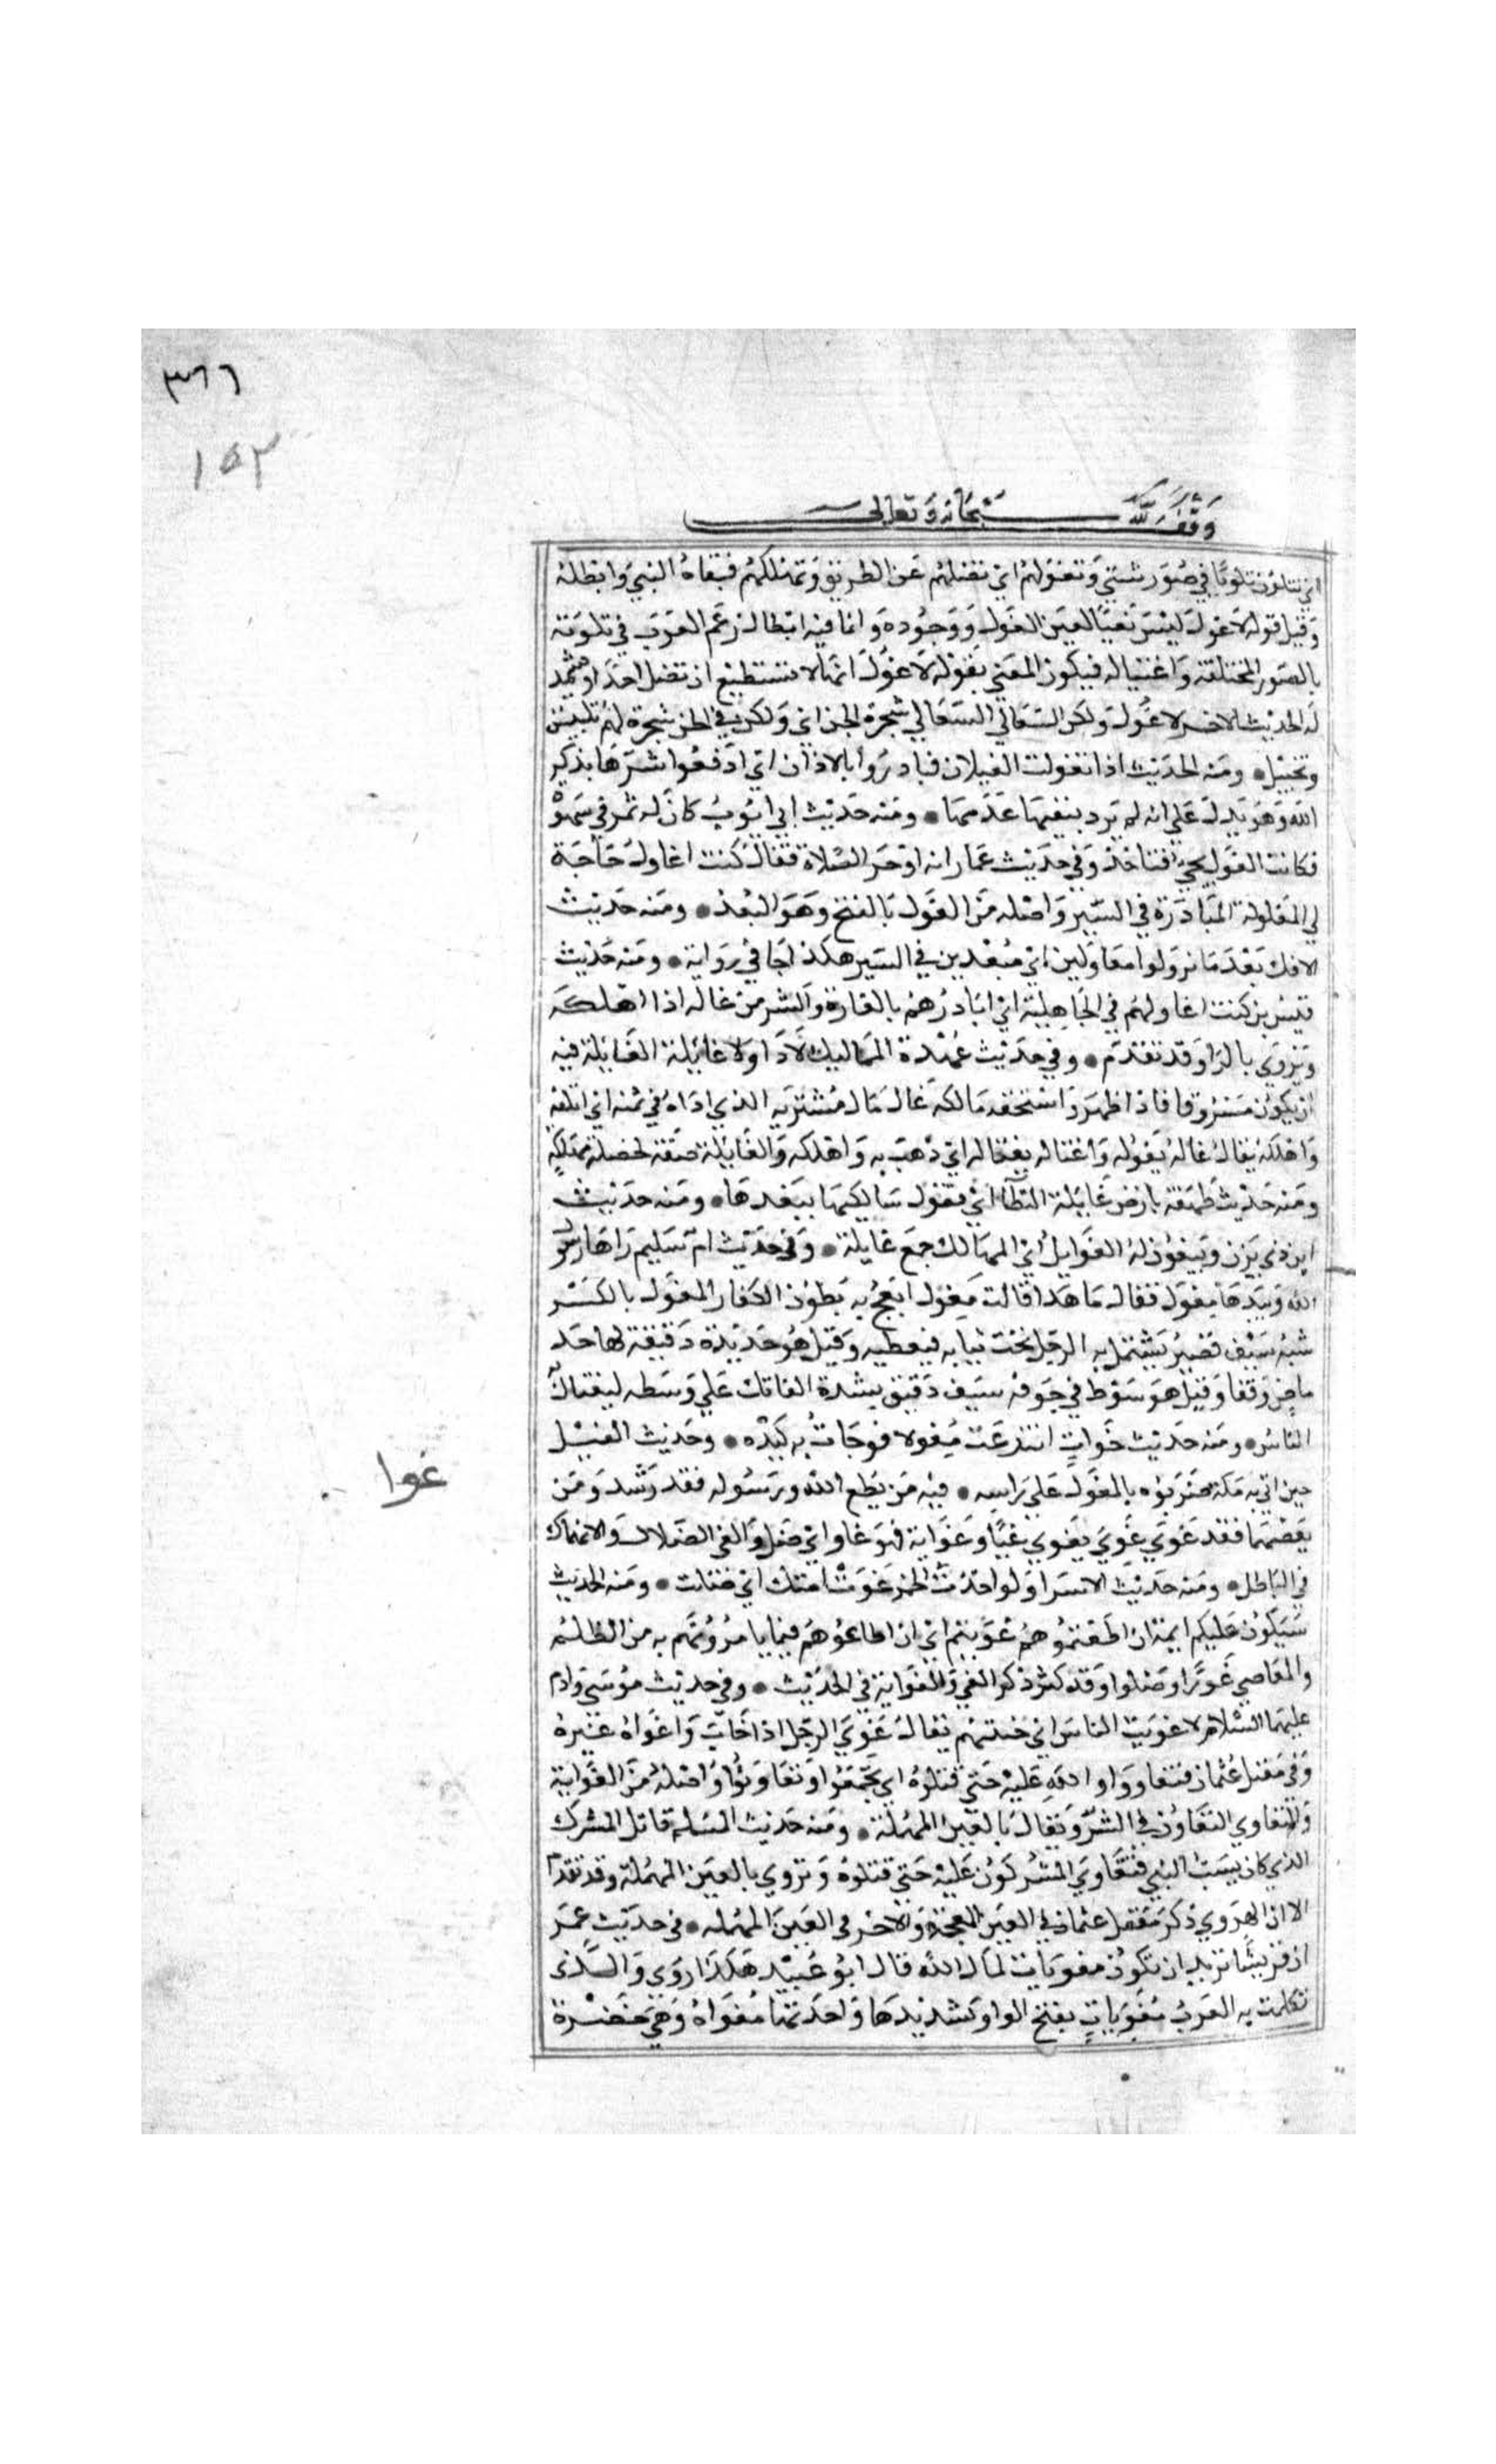 ٣٦٦
١٥٢
وقف لله سبحانه وتعالى
اي تتلون تلونا في صور شتي وتغولهم اي تضلهم عن الطريق وتهلكهم فنفاه النبي وابطله
وقيل قوله لا غول ليس نفيا لعين الغول ووجوده وانما فيه ابطال زعم العرب في تلونه
بالصور المختلفة واغتياله فيكون المعني بقوله لا غول انها لا تستطيع ان تضل احدا ويشهد
له الحديث الاخر لا غول ولكن السعالي السعالي سحرة الجن اي ولكن في الجن سحرة لهم تلبيس
وتخييل ومنه الحديث اذا تغولت الغيلان فبادروا بالاذان اي ادفعوا شرها بذكر
الله وهو يدل علي انه لم يرد بنفيها عدمها ومنه حديث ابي ايوب كان له تمر في سهوة
فكانت الغول تجي فتاخذ وفي حديث عمار انه اوجز الصلاة فقال كنت اغاول حاجة
لي المغاولة المبادرة في السير واصله من الغول بالفتح وهو البعد ومنه حديث
الافك بعد ما نزلوا مغاولين اي مبعدين في السير هكذا جا في رواية ومنه حديث
قيس بن كنت اغاولهم في الجاهلية اي ابادرهم بالغارة والشر من غاله اذا اهلكه
ويروي بالرا وقد تقدم وفي حديث عهدة المماليك لا دا ولا غايلة الغايلة فيه
ان يكون مسروقا فاذا ظهر واستحقه مالكه غال مال مشتريه الذي اداه في ثمنه اي اتلفه
واهلكه يقال غاله يغوله واغتاله يغتاله اي ذهب به واهلكه والغايلة صفة لخصلة مهلكة
ومنه حديث طهفة بارض غايلة النطا اي تغول سالكيها ببعدها ومنه حديث
ابن ذي يزن ويبغون له الغوايل اي المهالك جمع غايلة وفي حديث ام سليم راها رسول
الله وبيدها مغول فقال ما هذا قالت مغول ابعج به بطون الكفار المغول بالكسر
شبه سيف قصير يشتمل به الرجل تحت ثيابه فيغطيه وقيل هو حديدة دقيقة لها حد
ماض وقفا وقيل هو سوط في جوفه سيف دقيق يشده الفاتك علي وسطه ليغتال
الناس ومنه حديث خوات انتزعت مغولا فوجات به كبده وحديث الفيل
حين اتي به مكة ضربوه بالمغول علي راسه فيه من يطع الله ورسوله فقد رشد ومن
غوا
يعصهما فقد غوي غوي يغوي غيا وغواية فهو غاو اي ضل والغي الضلال والانهماك
في الباطل ومنه حديث الاسرا ولو اخذت الخمر غوت امتك اي ضلت ومنه الحديث
سيكون عليكم ايمة ان اطعتموهم غويتم اي ان اطاعوهم فيما يامرونهم به من الظلم
والمعاصي غووا وضلوا وقد كثر ذكر الغي والغواية في الحديث وفي حديث موسي وادم
عليهما السلام لاغويت الناس اي خيبتهم يقال غوي الرجل اذا خاب واغواه غيره
وفي مقتل عثمان فتغاووا والله عليه حتي قتلوه اي تجمعوا وتعاونوا واصله من الغواية
والتغاوي التعاون في الشر ويقال بالعين المهملة ومنه حديث المسلم قاتل المشرك
الذي كان يسب النبي فتغاوي المشركون عليه حتي قتلوه وتروي بالعين المهملة وقد تقدم
الا ان الهروي ذكر مقتل عثمان في الغين المعجمة والاخر في العين المهملة في حديث عمر
ان قريشا تريد ان تكون مغويات لمال الله قال ابو عبيد هكذا روي والذي
تكلمت به العرب مغويات بفتح الواو وتشديدها واحدتها مغواة وهي حفرة